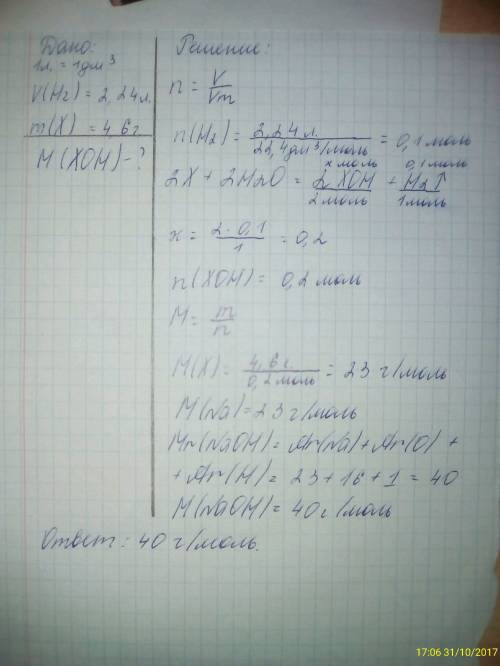 Дано:
1л. = 1дм³
V(H₂) = 2,24л.
m(X) = 4,6г
M(XOH) - ?
Решение:
n = V/Vm
n(H₂) = 2,24л./22,4дм³/моль = 0,1моль
x моль 0,1моль
2X + 2H₂O = 2XOH + H₂↑
2моль 1моль
x = 2·0,1/1 = 0,2
n(XOH) = 0,2моль
M = m/n
M(X) = 4,6г/0,2моль = 23 г/моль
M(Na) = 23 г/моль
Mr(NaOH) = Ar(Na) + Ar(O) +
+ Ar(H) = 23 + 16 + 1 = 40
M(NaOH) = 40г/моль
Ответ: 40 г/моль.
17:06 31/10/2017